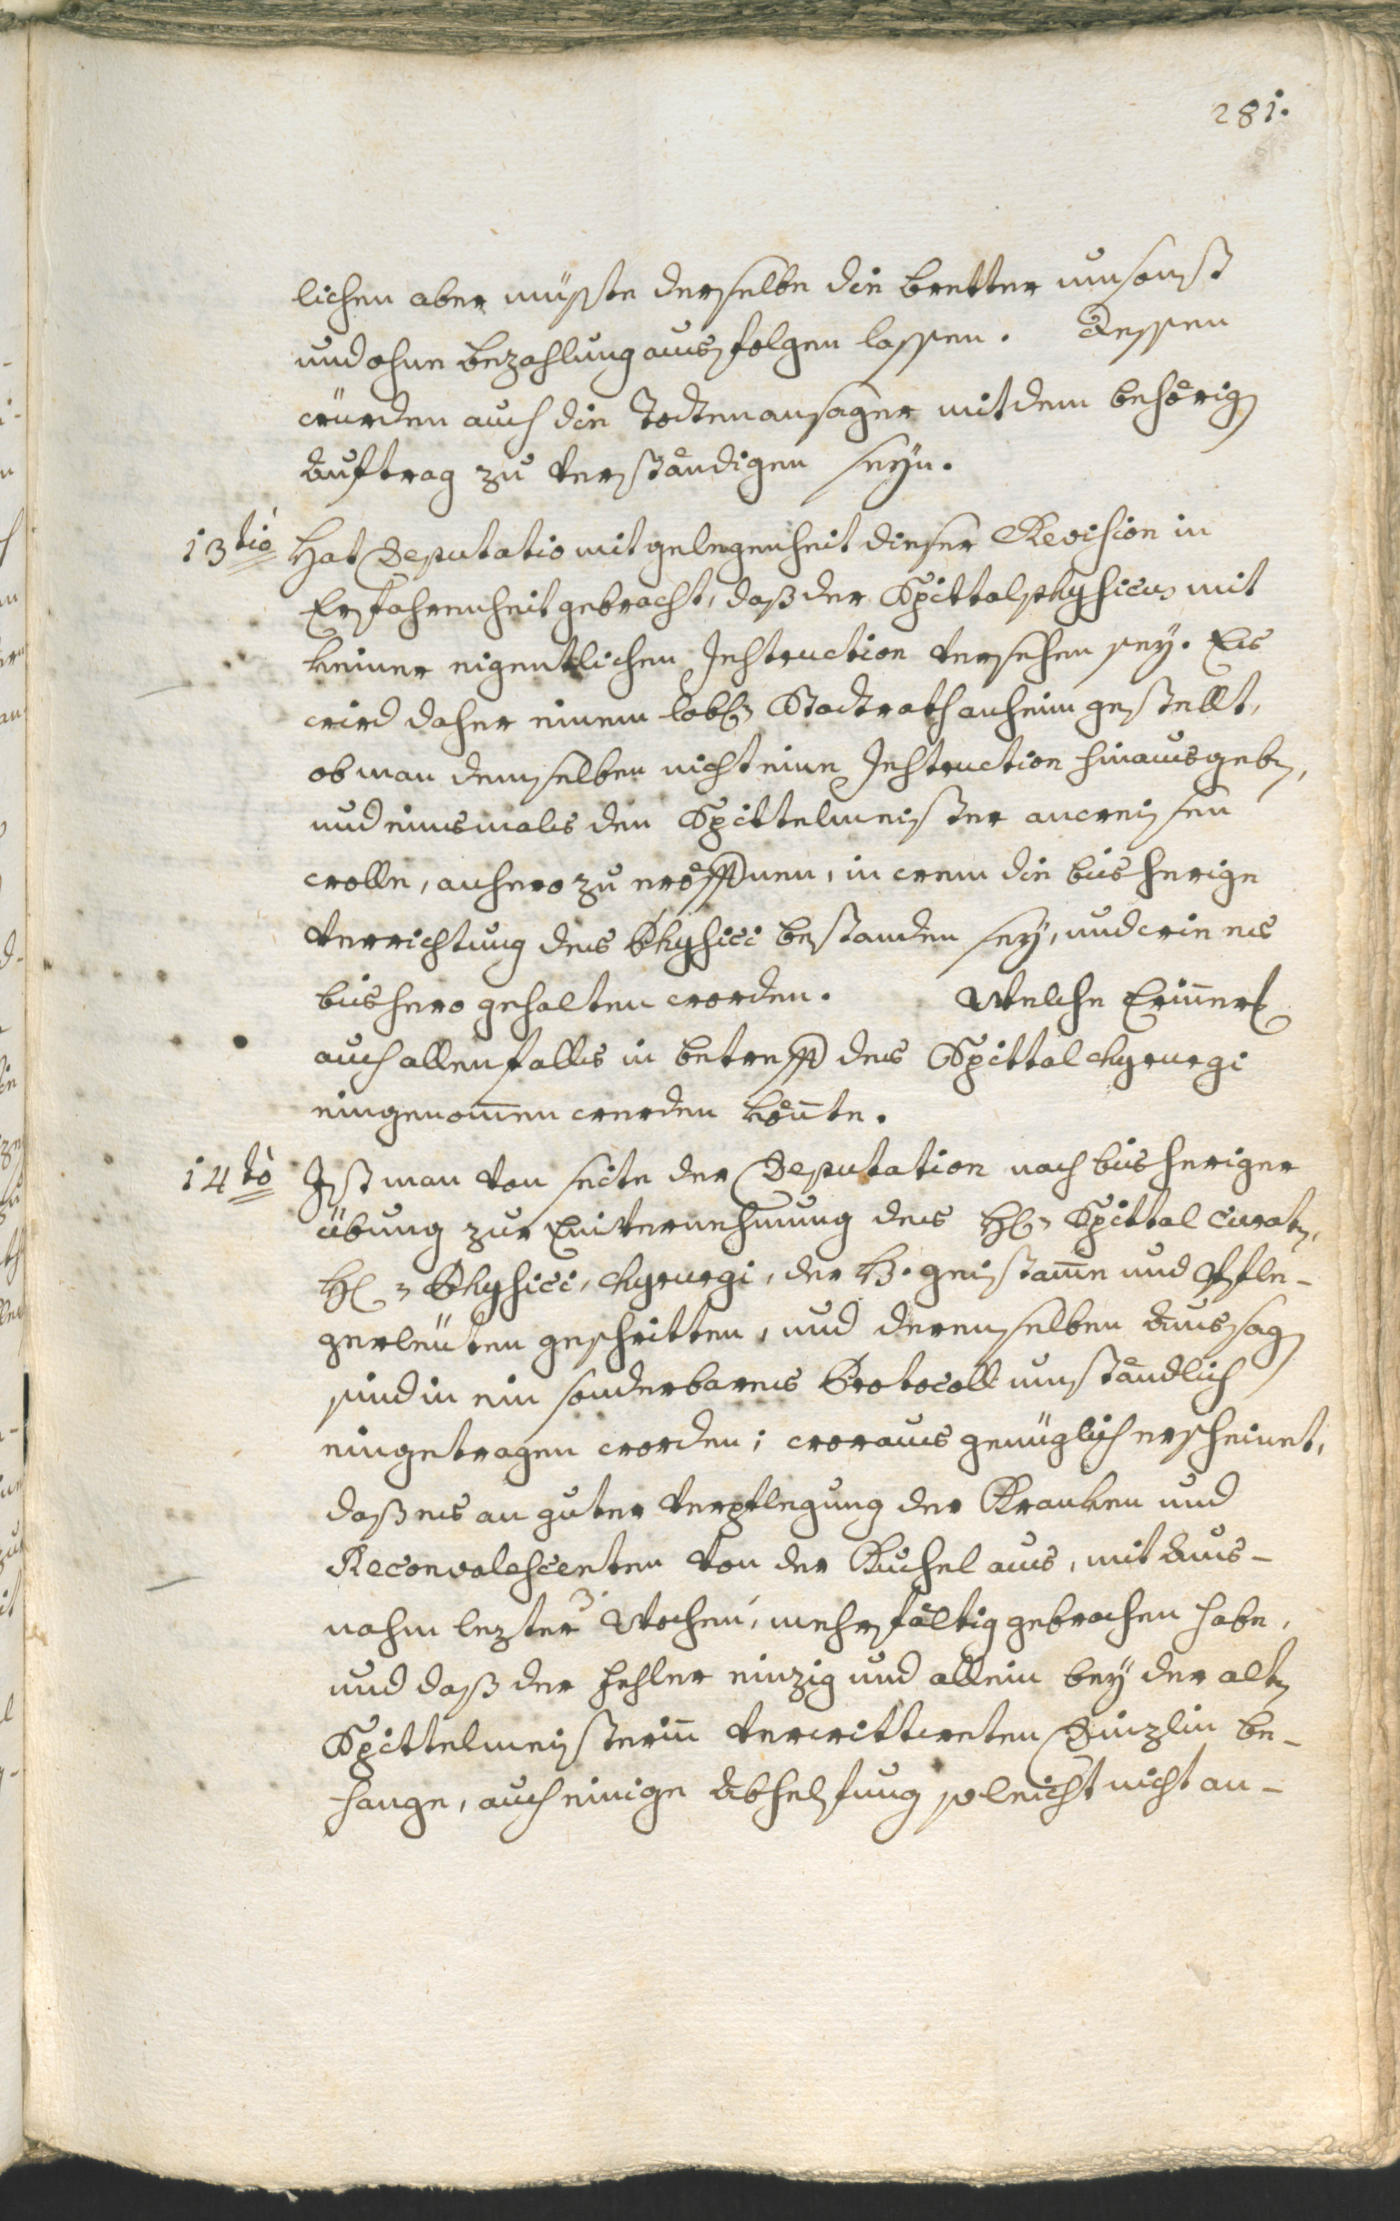 281.
lichen aber müsste derselbe die bretter umsonst
und ohne bezahlung ausfolgen lassen. Dessen
würden auch die Todtenansager mit dem behörig
Auftrag zu verständigen seÿn.
13tiò Hat Deputatio mit gelegenheit dieser Revision in
Erfahrenheit gebracht, daß der Spittalphysicus mit
keiner eigentlichen Instruction versehen seÿ. Es
wird daher einem löbl Stadtrath anheim gestellt,
ob man demselben nicht eine Instruction hinausgeben,
und einsmals den Spittelmeister anweisen
wolle, anhero zu eröffnen, in wem die bisherige
Verrichtung des Physici bestanden seÿ, und wie es
bishero gehalten worden. Welche Erinner
auch allenfalls in betreff des Spittalchyrurgi
eingenom̄en werden kön̄te.
14tò Ist man von seite der Deputation nach bisheriger
übung zur Einvernehmung des H Spittal Curaten,
H Physici, Chyrurgi, der H. geistam̄e und Pfle-
gerleüten geschritten, und derenselben Aussag
sind in ein sonderbares Protocoll umständlich
eingetragen worden; woraus genüglich erscheinet,
daß es an guter Verpflegung der Kranken und
Reconvalescenten von der Kuchel aus, mit Aus-
nahm lezter 3. Wochen, mehrfältig gebrochen habe,
und daß der fehler einzig und allein beÿ der alten
Spittelmeisterin̄ verwittweten Dinzlin be-
hange, auch einige Abhelfung vleicht nicht an-